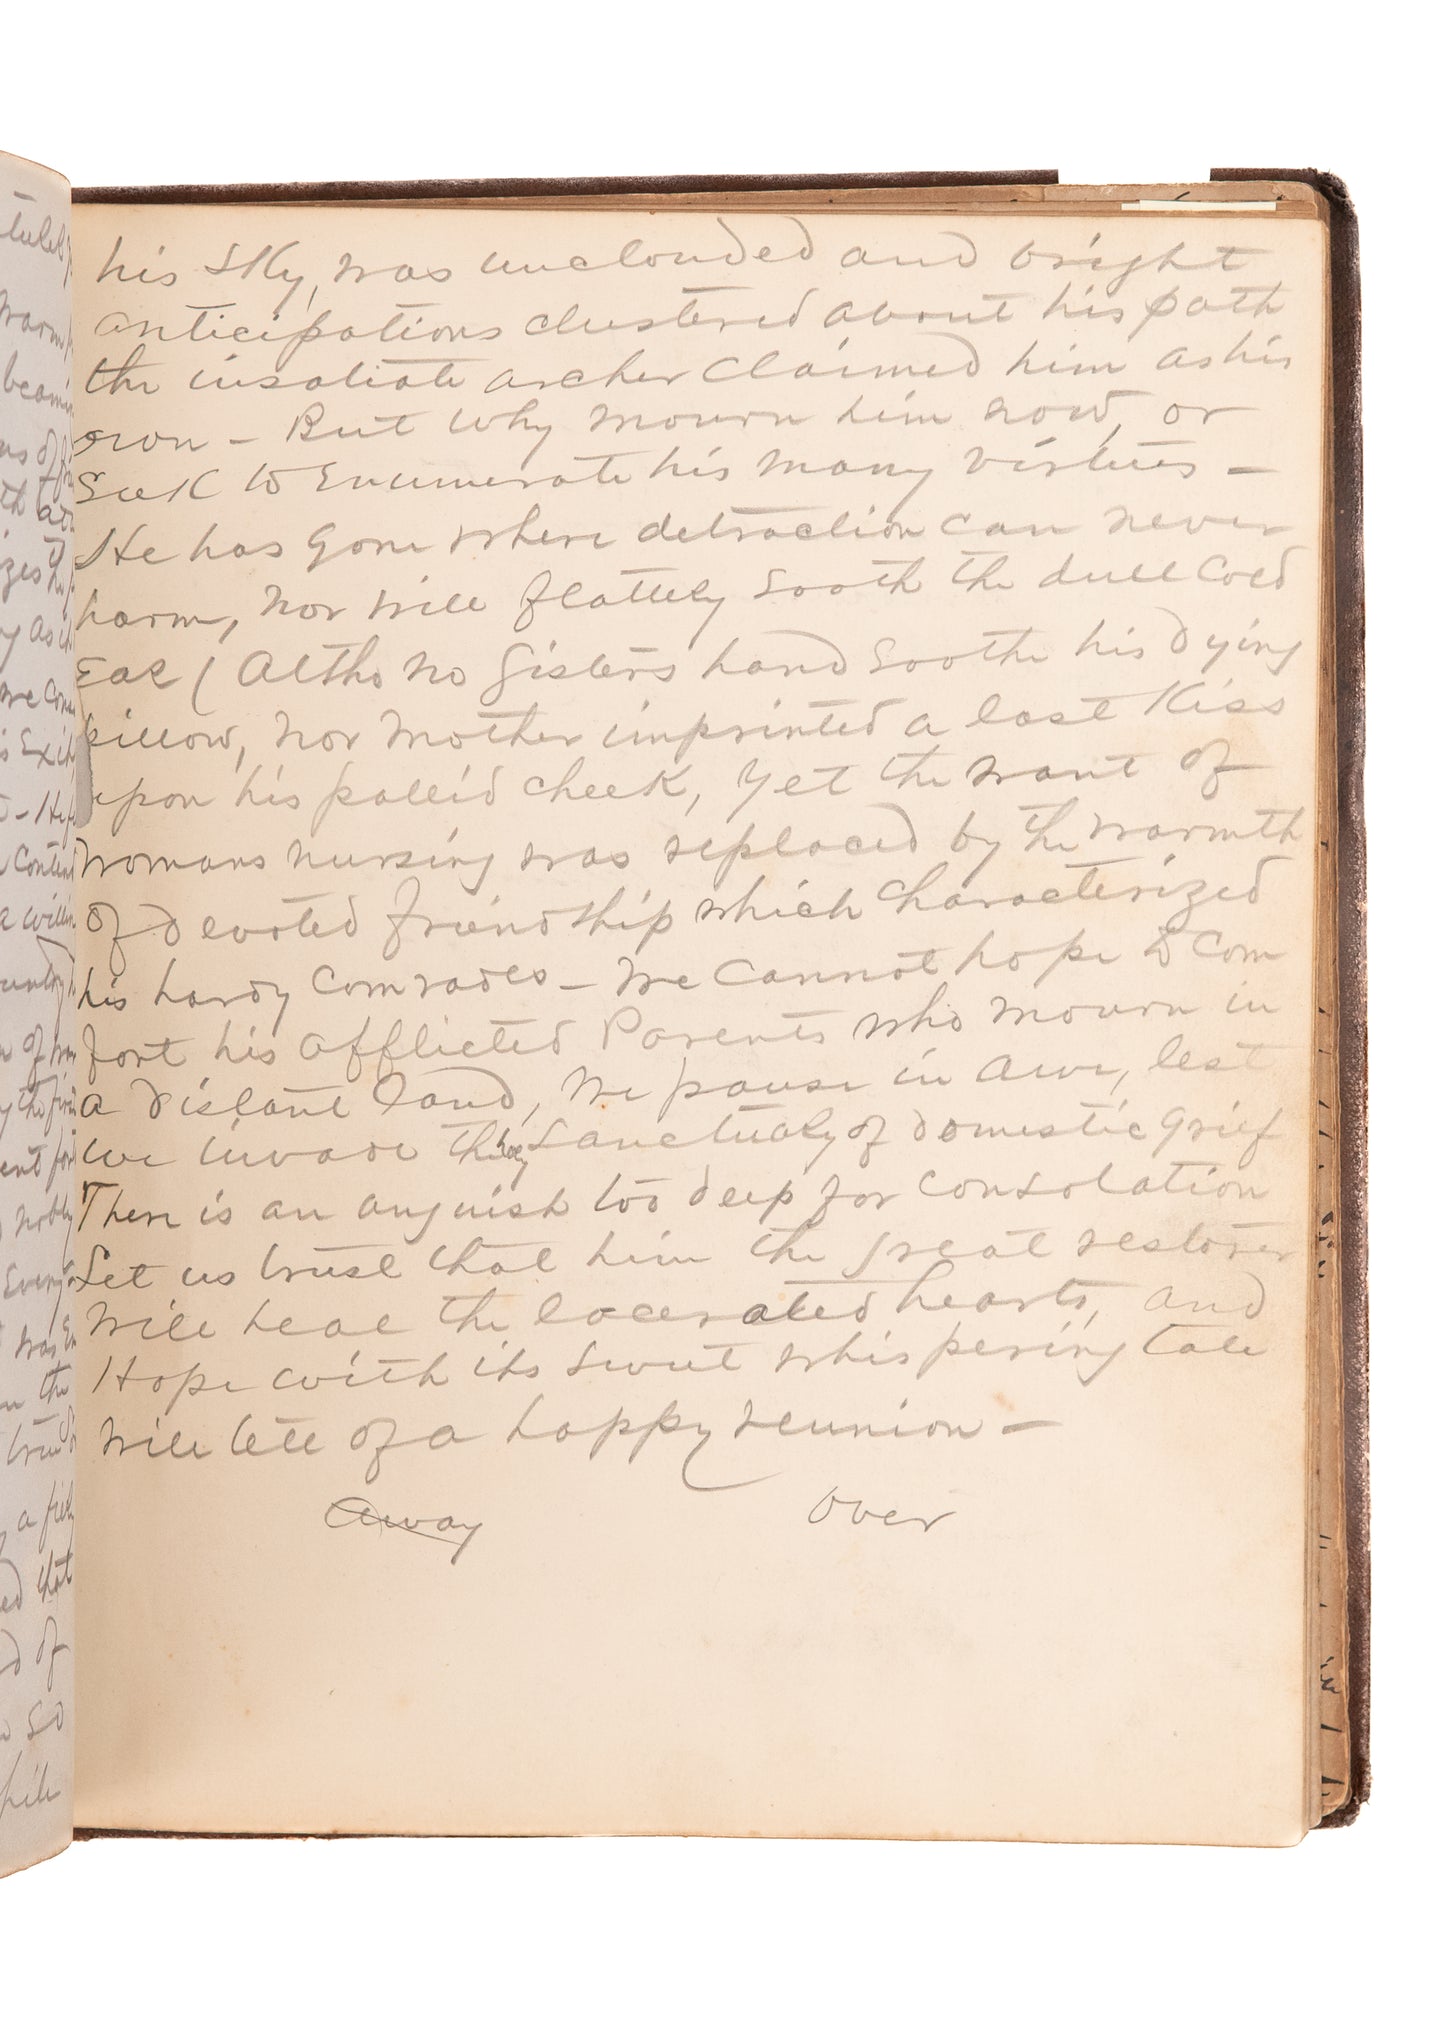 his sky, was unclouded and bright
anticipations clustered about his path
the insatiate archer claimed him as his
own - But why mourn him now, or
seek to enumerate his many virtues -
He has gone where detraction can never
harm, nor will flattery sooth the dull cold
Ear (Altho no Sisters hand soothe his dying
pillow, nor mother imprinted a last Kiss
upon his pallid cheek, yet the want of
womans nursing was replaced by the warmth
of devoted friendship which characterized
his hardy comrades - We cannot hope to com
fort his afflicted Parents who mourn in
a distant land, We pause in awe, lest
we invade the sanctuary of domestic grief
There is an anguish too deep for consolation
Let us trust that him the great restorer
will heal the lacerated hearts, and
Hope with its sweet whispering tale
will tell of a happy reunion -
Away over